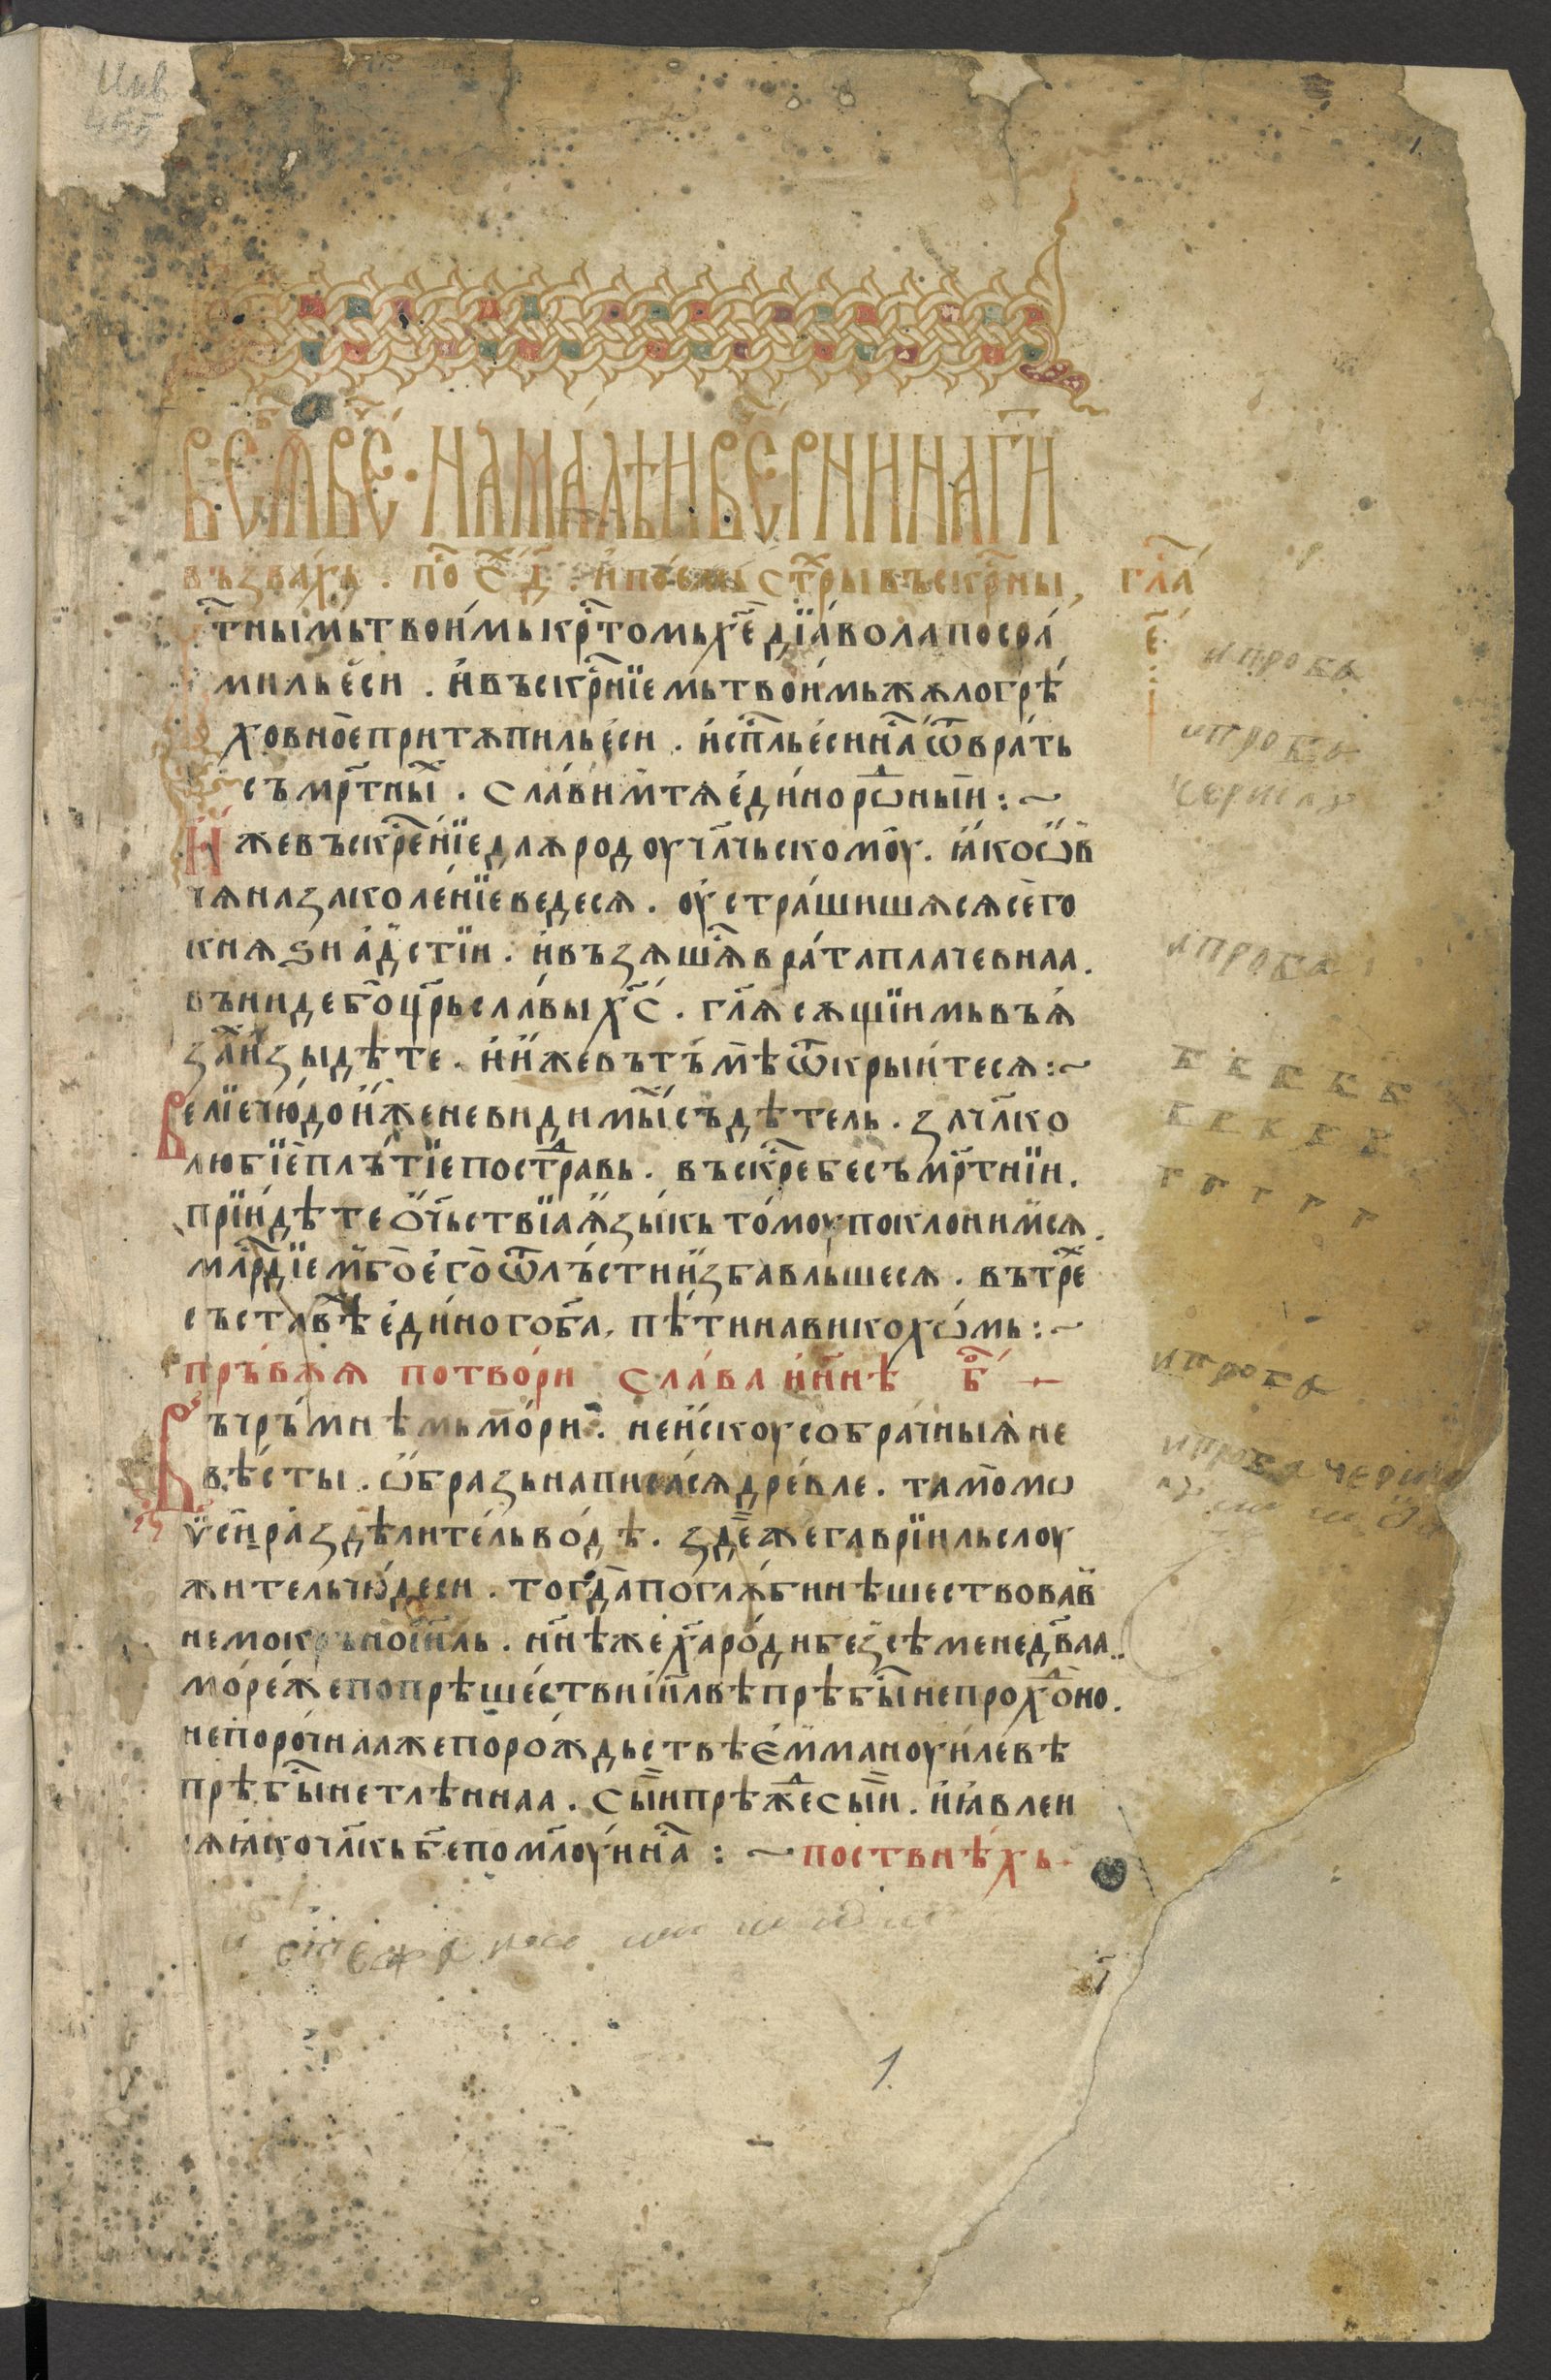 Инв
455
1.
въсѫⷡ҇ вⷱ҇е · на малѣи вⷱ҇ерни на гⷭ҇и
възвахь . поⷭ҇ сⷯ д҃ . и поемь стⷯры въскрⷭ҇ны , глаⷭ҇ е҃
тⷭ҇нымь твоимь крⷭ҇томь хе҃ дїавола посра
миль еси . и въскрⷭ҇нїемь твоимь жѧло грѣ
ховное притѫпиль еси . и сп҃ль еси наⷭ҇ ѿ врать
съмрⷮ҇ныⷯ . славимтѧ единороⷣныи : ~
Иже въскрⷭ҇енїе даѧ родоу чл҃чьскомоу . ꙗко ѡв
чѧ на заколенїе ведесѧ . оустрашишѧсѧ сего
кнѧѕи адстїи . и възѧшѧсⷭ҇ врата плачевнаа .
въниде бо цр҃ь славы хс҃ . гл҃ѧ сѫщїимь въ ѫ
захⷯ изыдѣте . и иже вътъмѣ ѿкрыитесѧ : ~
Велїе чюдо иже невидимыи съдѣтель . за чл҃ко
любїе плътїе постраⷣвь . въскрⷭ҇е бесъмрⷮ҇нїи .
прїидѣте ѡ҃чьствїа ѧзыкь томоу поклонимсѧ .
млрⷭ҇дїемь бо его ѿ лъсти избавльшеесѧ . вътреⷯ
съставѣⷯ единого ба҃ , пѣти навикохѡмь : ~
пръвѫѧ потвори слава и нн҃ѣ б҃оⷢ
Въ чръмнѣмь мори . неискоусобрачныѫ не
вѣсты . ѡбразь написасѧ древле . тамо мѡ
ѵсии раздѣлитель водѣ . зде же гаврїиль слоу
житель чюдеси . тогда поглѫбинѣ шествовав
немокръно іи҃ль . нн҃ѣже ха҃ роди бе᲼з сѣмене дв҃аа .
море же по прѣшествии іи҃левѣ прѣбыⷭ҇ непрохоⷣно .
непорочнаа же по рождьствѣ емманоуилевѣ
прѣбыⷭ҇ нетлѣннаа . сыи и прѣжⷣе сыи . и ꙗвлеи
сѧ ꙗко чл҃кь б҃е помл҃оуи наⷭ҇ : ~ по ст҃внѣхь
и проба
и проба
чернилу
и проба
б б б б б
б б б б б
г г г г г
и проба
и проба черни
1.